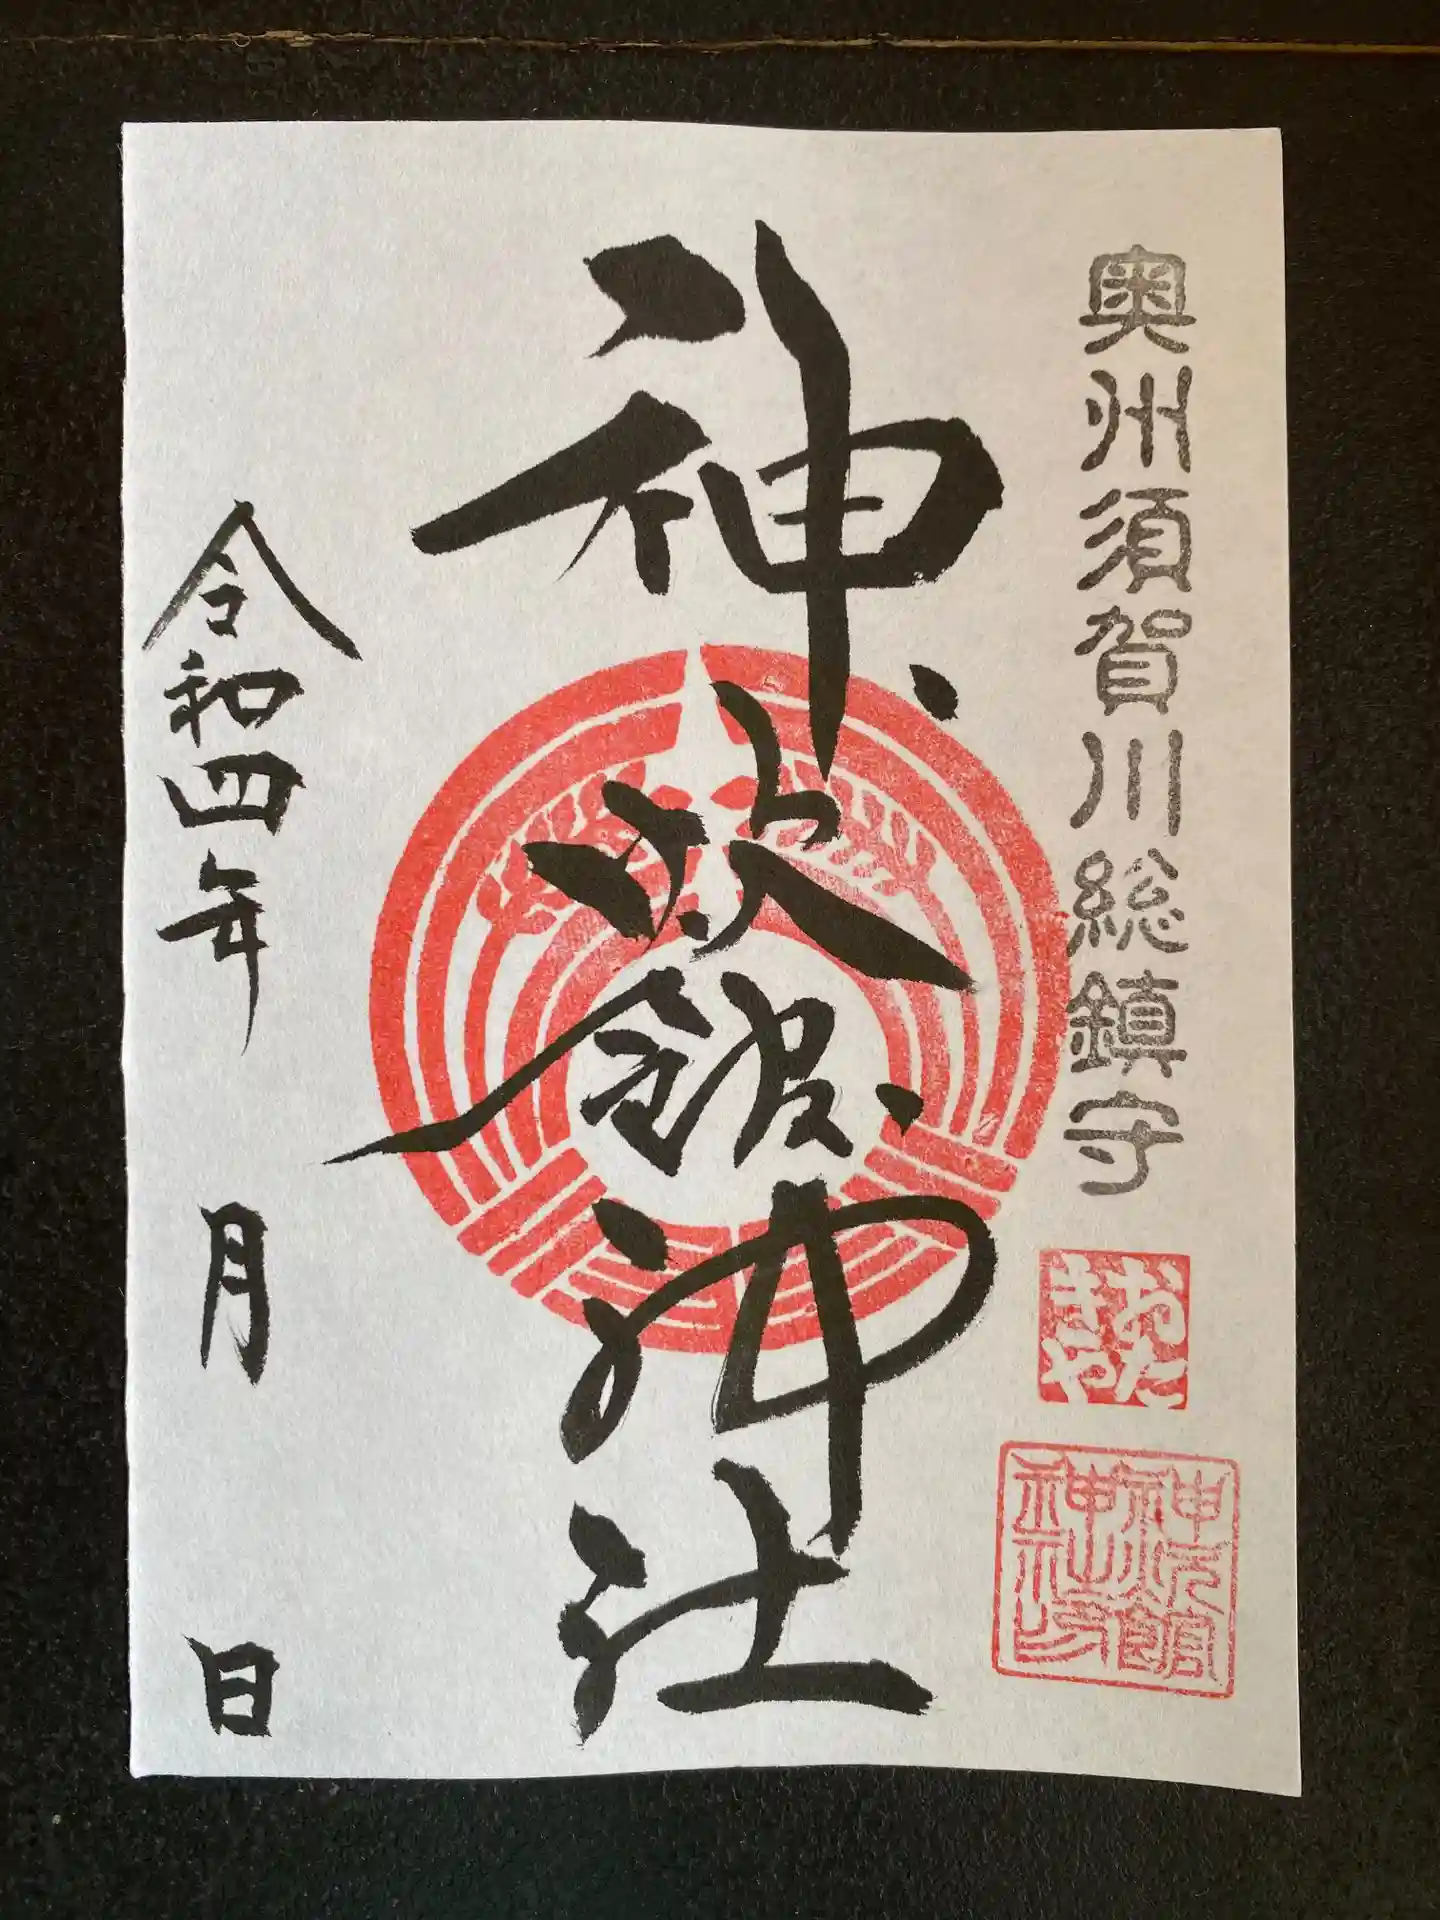 奥州須賀川総鎮守
おた
きや
神炊館
神社印
神炊館神社
令和四年 月 日